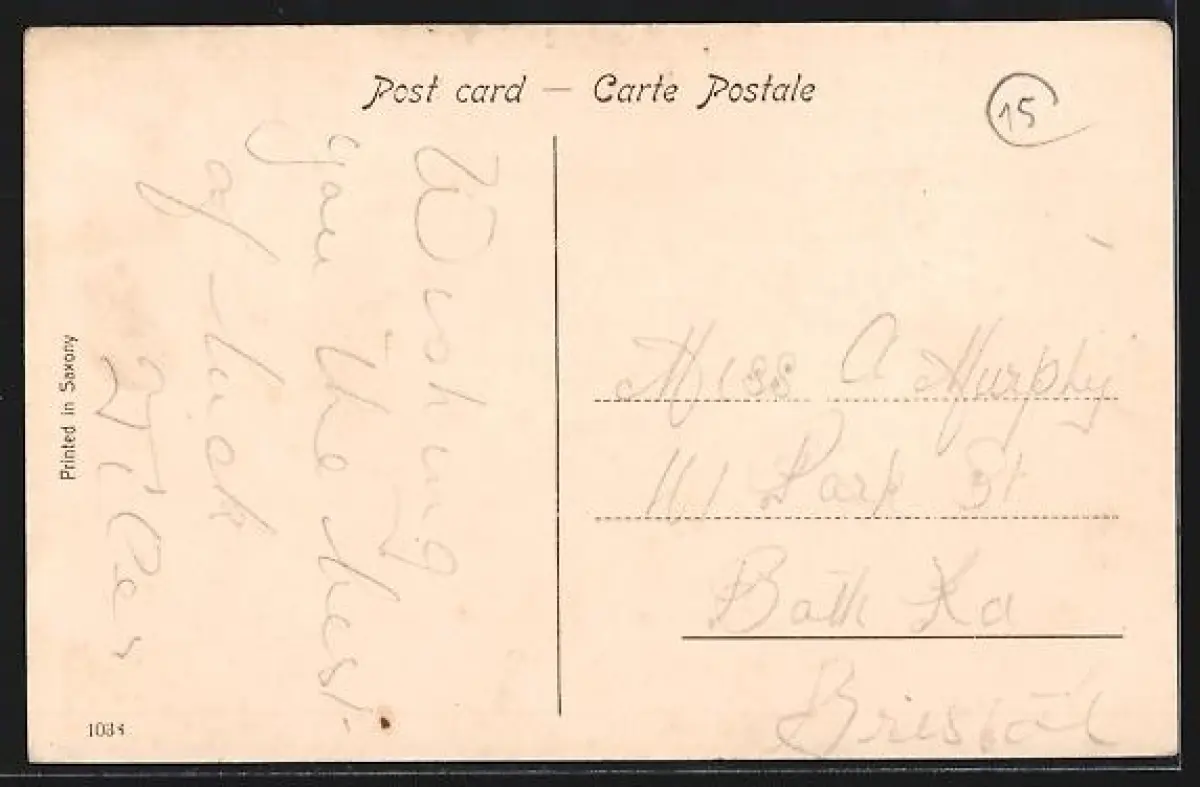 Post card — Carte Postale
15
Wishing
you the best
of luck
Miss A Murphy
161 Park St
Bath Rd
Bristol
Printed in Saxony
1038